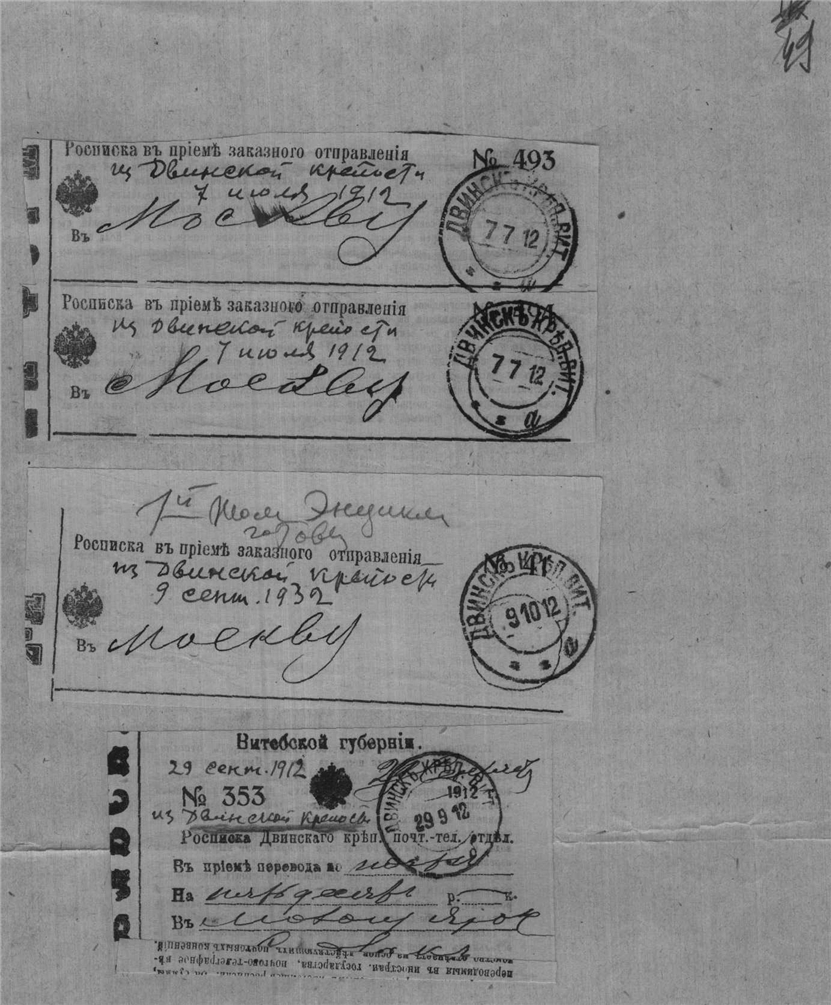 49
Росписка въ пріемѣ заказного отправленія
№ 493
из Двинской крепости
7 июля 1912
Въ Москву
ДВИНСКЪ КРѢП. ВИТ.
7 7 12
а
Росписка въ пріемѣ заказного отправленія
из Двинской крепости
7 июля 1912
Въ Москву
ДВИНСКЪ КРѢП. ВИТ.
7 7 12
а
1й том Энцикл
готов
Росписка въ пріемѣ заказного отправленія
№ 41
из Двинской крепости
9 сент. 1932
Въ Москву
ДВИНСКЪ КРѢП. ВИТ.
9 10 12
Витебской губерніи.
29 сент. 1912
№ 353
1912
из Двинской крепости
ДВИНСКЪ КРѢП. ВИТ.
29 9 12
Росписка Двинскаго крѣп. почт.-тел. отдѣл.
Въ пріемѣ перевода по
На пятьдесят р. к.
Въ
переводимыя въ иностран. государства, почтово-телеграфное вѣ-